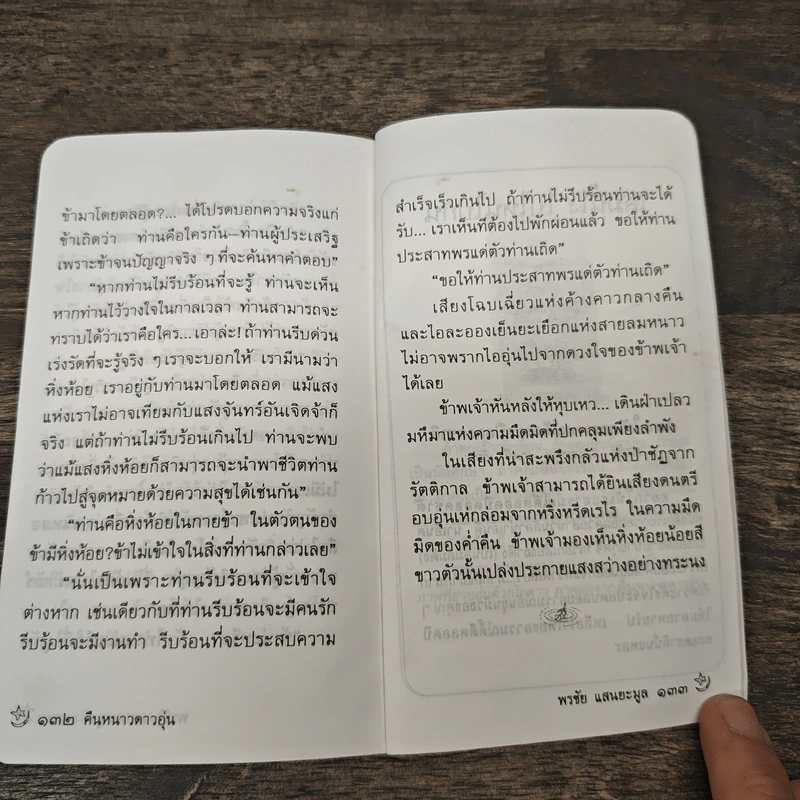 ข้ามาโดยตลอด?... ได้โปรดบอกความจริงแก่
ข้าเถิดว่า ท่านคือใครกัน–ท่านผู้ประเสริฐ
เพราะข้าจนปัญญาจริง ๆ ที่จะค้นหาคำตอบ”
“หากท่านไม่รีบร้อนที่จะรู้ ท่านจะเห็น
หากท่านไว้วางใจในกาลเวลา ท่านสามารถจะ
ทราบได้ว่าเราคือใคร...เอาล่ะ! ถ้าท่านรีบด่วน
เร่งรัดที่จะรู้จริง ๆ เราจะบอกให้ เรามีนามว่า
หิ่งห้อย เราอยู่กับท่านมาโดยตลอด แม้แสง
แห่งเราไม่อาจเทียมกับแสงจันทร์อันเจิดจ้าก็
จริง แต่ถ้าท่านไม่รีบร้อนเกินไป ท่านจะพบ
ว่าแม้แสงหิ่งห้อยก็สามารถจะนำพาชีวิตท่าน
ก้าวไปสู่จุดหมายด้วยความสุขได้เช่นกัน”
“ท่านคือหิ่งห้อยในกายข้า ในตัวตนของ
ข้ามีหิ่งห้อย?ข้าไม่เข้าใจในสิ่งที่ท่านกล่าวเลย”
“นั่นเป็นเพราะท่านรีบร้อนที่จะเข้าใจ
ต่างหาก เช่นเดียวกับที่ท่านรีบร้อนจะมีคนรัก
รีบร้อนจะมีงานทำ รีบร้อนที่จะประสบความ
๑๓๒ คืนหนาวดาวอุ่น
สำเร็จเร็วเกินไป ถ้าท่านไม่รีบร้อนท่านจะได้
รับ... เราเห็นทีต้องไปพักผ่อนแล้ว ขอให้ท่าน
ประสาทพรแด่ตัวท่านเถิด”
“ขอให้ท่านประสาทพรแด่ตัวท่านเถิด”
เสียงโฉบเฉี่ยวแห่งค้างคาวกลางคืน
และไอละอองเย็นยะเยือกแห่งสายลมหนาว
ไม่อาจพรากไออุ่นไปจากดวงใจของข้าพเจ้า
ได้เลย
ข้าพเจ้าหันหลังให้หุบเหว... เดินฝ่าเปลว
มหึมาแห่งความมืดมิดที่ปกคลุมเพียงลำพัง
ในเสียงที่น่าสะพรึงกลัวแห่งป่าชัฏจาก
รัตติกาล ข้าพเจ้าสามารถได้ยินเสียงดนตรี
อบอุ่นเห่กล่อมจากหริ่งหรีดเรไร ในความมืด
มิดของค่ำคืน ข้าพเจ้ามองเห็นหิ่งห้อยน้อยสี
ขาวตัวนั้นเปล่งประกายแสงสว่างอย่างทระนง
พรชัย แสนยะมูล ๑๓๓